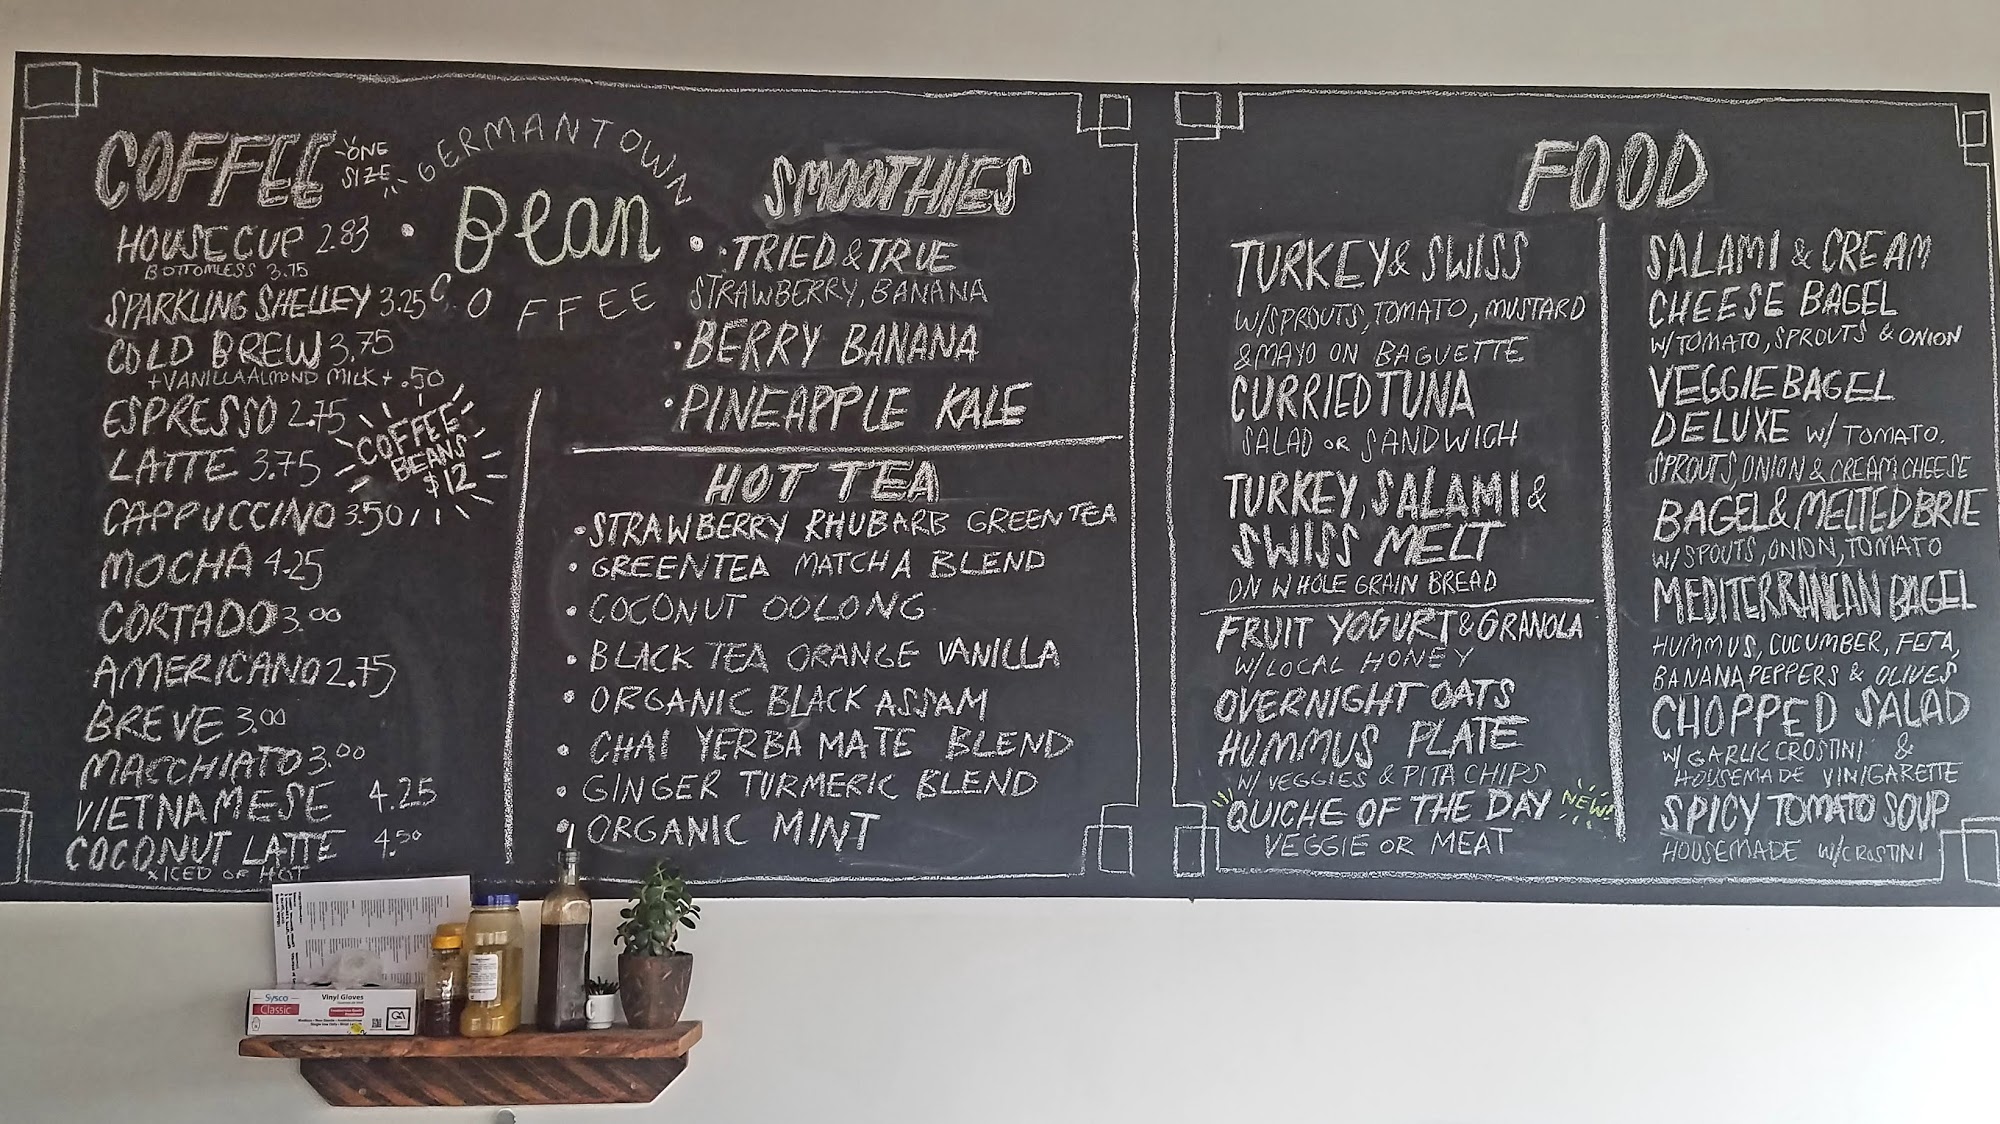 COFFEE
ONE
SIZE
HOUSE CUP 2.83
BOTTOMLESS 3.75
SPARKLING SHELLEY 3.25
COLD BREW 3.75
+VANILLA ALMOND MILK + .50
ESPRESSO 2.75
LATTE 3.75
CAPPUCCINO 3.50
MOCHA 4.25
CORTADO 3.00
AMERICANO 2.75
BREVE 3.00
MACCHIATO 3.00
VIETNAMESE 4.25
COCONUT LATTE 4.50
*ICED OR HOT
COFFEE
BEANS
$12
GERMANTOWN
Bean
COFFEE
SMOOTHIES
• TRIED & TRUE
STRAWBERRY, BANANA
• BERRY BANANA
• PINEAPPLE KALE
HOT TEA
• STRAWBERRY RHUBARB GREEN TEA
• GREEN TEA MATCHA BLEND
• COCONUT OOLONG
• BLACK TEA ORANGE VANILLA
• ORGANIC BLACK ASSAM
• CHAI YERBA MATE BLEND
• GINGER TURMERIC BLEND
• ORGANIC MINT
FOOD
TURKEY & SWISS
W/SPROUTS, TOMATO, MUSTARD
& MAYO ON BAGUETTE
CURRIED TUNA
SALAD OR SANDWICH
TURKEY, SALAMI &
SWISS MELT
ON WHOLE GRAIN BREAD
FRUIT YOGURT & GRANOLA
W/ LOCAL HONEY
OVERNIGHT OATS
HUMMUS PLATE
W/ VEGGIES & PITA CHIPS
QUICHE OF THE DAY NEW!
VEGGIE OR MEAT
SALAMI & CREAM
CHEESE BAGEL
W/TOMATO, SPROUTS & ONION
VEGGIE BAGEL
DELUXE W/ TOMATO.
SPROUTS, ONION & CREAM CHEESE
BAGEL & MELTED BRIE
W/SPOUTS, ONION, TOMATO
MEDITERRANEAN BAGEL
HUMMUS, CUCUMBER, FETA,
BANANA PEPPERS & OLIVES
CHOPPED SALAD
W/ GARLIC CROSTINI &
HOUSEMADE VINIGARETTE
SPICY TOMATO SOUP
HOUSEMADE W/CROSTINI
Sysco
Classic
Vinyl Gloves